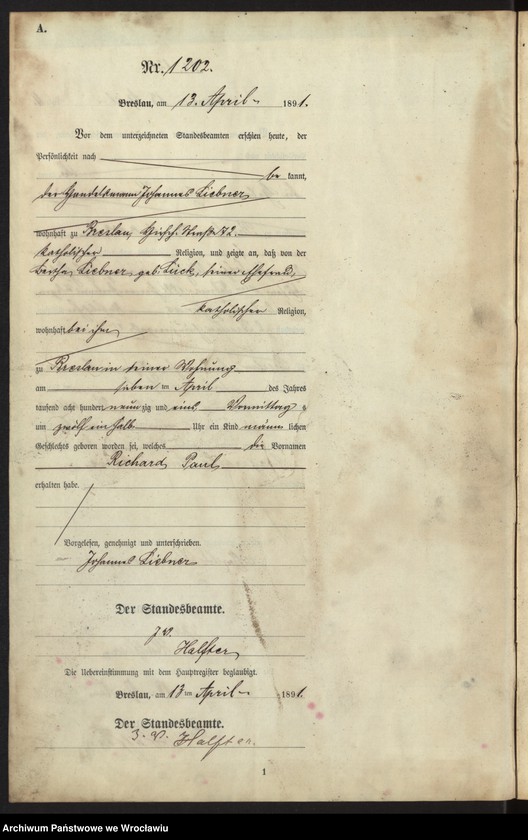 A.
Nr. 1202.
Breslau, am 13. April 1891.
Vor dem unterzeichneten Standesbeamten erschien heute, der
Persönlichkeit nach
be kannt,
der Handelsmann Johannes Liebner
wohnhaft zu Breslau, Hirsch-Straße 72.
katholischer Religion, und zeigte an, daß von der
Bertha Liebner geb. Lück, seiner Ehefrau,
katholischer Religion,
wohnhaft bei ihm
zu Breslau in seiner Wohnung
am sieben ten April des Jahres
tausend acht hundert neun zig und eins Vormittag s
um zwölf ein halb Uhr ein Kind männ lichen
Geschlechts geboren worden sei, welches die Vornamen
Richard Paul
erhalten habe.
Vorgelesen, genehmigt und unterschrieben.
Johannes Liebner
Der Standesbeamte.
J. V.
Halfter
Die Uebereinstimmung mit dem Hauptregister beglaubigt.
Breslau, am 13 ten April 1891.
Der Standesbeamte.
J. V. Halfter.
1
Archiwum Państwowe we Wrocławiu